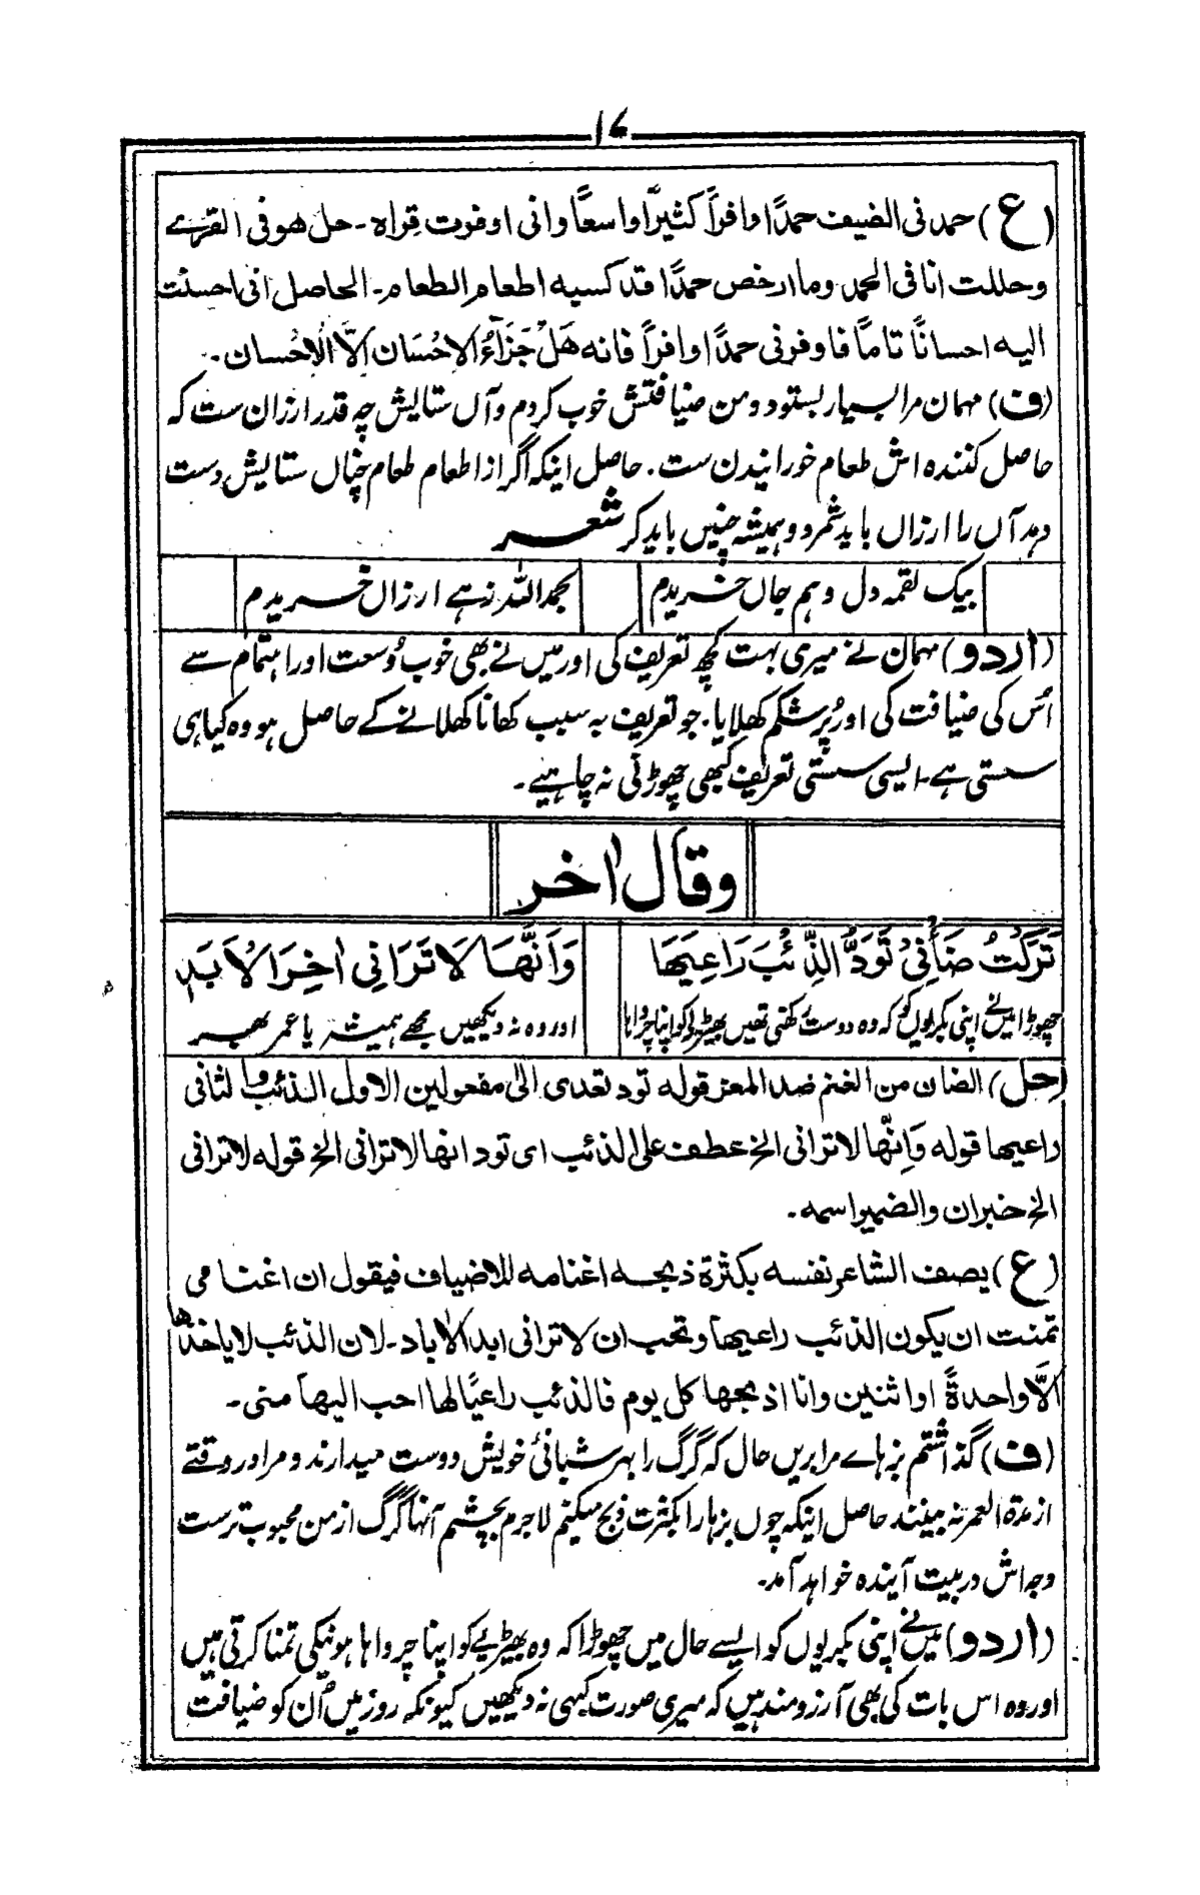 ۱۷
(ع) حمدنی الضیف حمدًا وافراً کثیرًا واسعًا وانی اوفرت قراہ۔ حل هو فی القرے
وحللت انا فی المحمد وما ارخص حمدًا قد کسبه اطعام الطعام۔ الحاصل انی احسنت
الیه احسانًا تامًا فاوفرنی حمدًا وافراً فانه هَلْ جَزَآءُ الْاِحْسَان اِلَّا الْاِحْسان۔
(ف) مہمان مرا بسیار بستود و من ضیافتش خوب کردم و آں ستایش چہ قدر ارزان ست کہ
حاصل کنندہ اش طعام خورانیدن ست۔ حاصل اینکہ اگر از اطعام طعام چناں ستایش دست
دہد آں را ارزاں باید شمرد و ہمیشہ چنیں باید کرد شعر
بیک لقمہ دل و ہم جاں خریدم
بحمد اللہ زہے ارزاں خریدم
(اردو) مہمان نے میری بہت کچھ تعریف کی اور میں نے بھی خوب وُسعت اور اہتمام سے
اُس کی ضیافت کی اور پُر شکم کھلایا۔ جو تعریف بہ سبب کھانا کھلانے کے حاصل ہو وہ کیا ہی
سستی ہے۔ ایسی سستی تعریف کبھی چھوڑنی نہ چاہیے۔
وقال اٰخر
تَرَکْتُ ضَأْنِیْ تَوَدُّ الذِّئْبَ رَاعِیَهَا
وَاَنَّهَا لَا تَرَانِی اٰخِرَ الْاَبَدِ
چھوڑا میں نے اپنی بکریوں کو کہ وہ دوست رکھتی تھیں بھیڑیے کو اپنا چرواہا
اور وہ نہ دیکھیں مجھے ہمیشہ یا عمر بھر
(حل) الضان من الغنم ضد المعز قوله تود تعدی الی مفعولین الاول الذئب والثانی
راعیها قوله وَاِنَّها لا ترانی الخ عطف علی الذئب ای تود انها لا ترانی الخ قوله لا ترانی
الخ خبر ان والضمیر اسمه۔
(ع) یصف الشاعر نفسه بکثرة ذبحه اغنامه للاضیاف فیقول ان اغنامی
تمنت ان یکون الذئب راعیها وتحب ان لا ترانی ابد الاٰباد۔ لان الذئب لا یاخذها
الّا واحدةً او اثنین وانا اذبحها کل یوم فالذئب راعیًا لها احب الیها منی۔
(ف) گذاشتم بزہاے مرا بریں حال کہ گرگ را بہر شبانیٔ خویش دوست میدارند و مرا در وقتے
از مدة العمر نہ بینند حاصل اینکہ چوں بزہا را بکثرت ذبح میکنم لاجرم بچشم آنہا گرگ از من محبوب ترست
وجہ اش در بیت آیندہ خواہد آمد۔
(اردو) میں نے اپنی بکریوں کو ایسے حال میں چھوڑا کہ وہ بھیڑیے کو اپنا چرواہا ہونیکی تمنا کرتی ہیں
اور وہ اس بات کی بھی آرزومند ہیں کہ میری صورت کبھی نہ دیکھیں کیونکہ روز میں اُن کو ضیافت